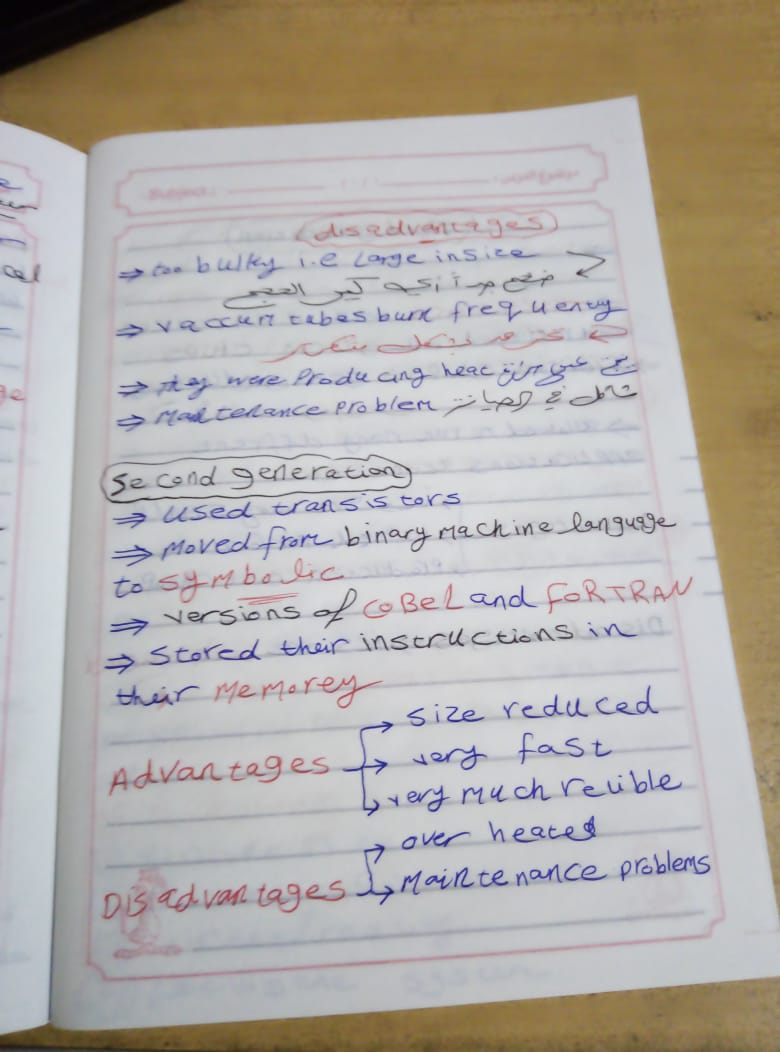 disadvantages
⇒ too bulky i.e large in size
⇒ vaccum tabes burn frequenty
⇒ they were producing heat
⇒ maintenance problem في الصيانة
Second generation
⇒ used transistors
⇒ moved from binary machine language
to symbolic
⇒ versions of COBEL and FORTRAN
⇒ Stored their instructions in
their memorey
Advantages → size reduced
→ very fast
→ very much relible
Disadvantages → over heated
→ Maintenance problems